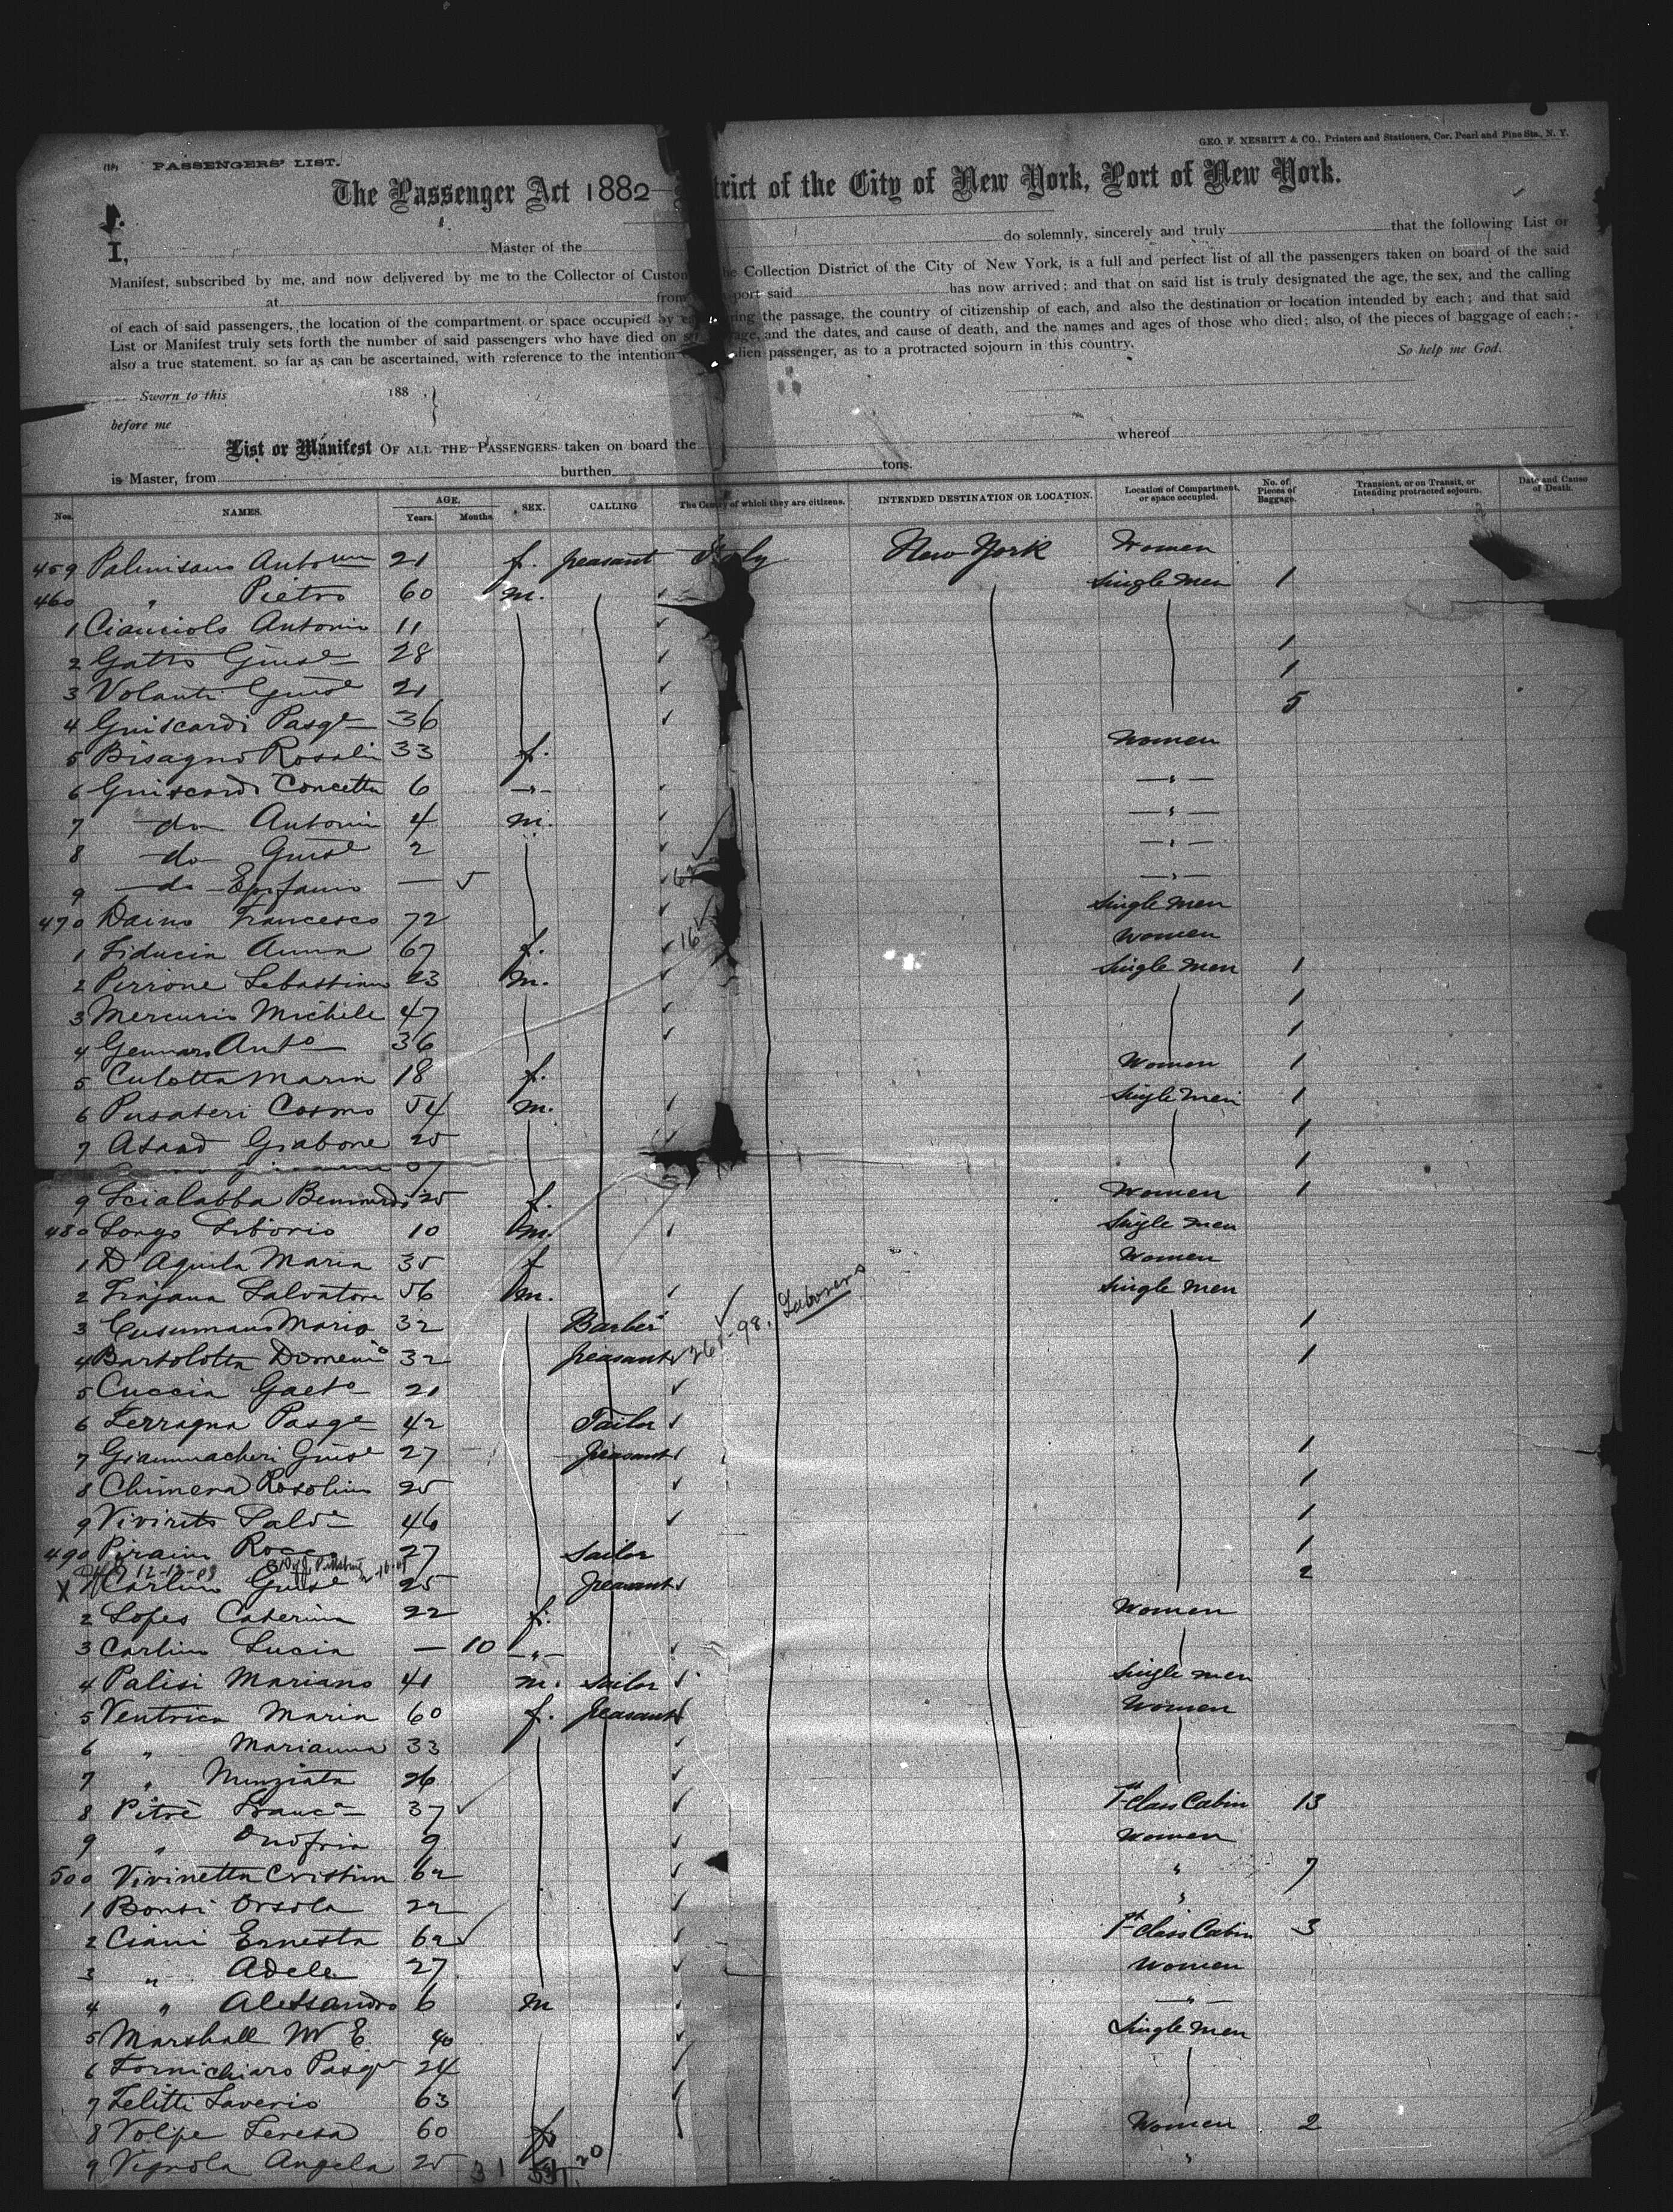 GEO. F. NESBITT & CO., Printers and Stationers, Cor. Pearl and Pine Sts., N. Y.
PASSENGERS' LIST.
The Passenger Act 1882 trict of the City of New York, Port of New York.
I, Master of the do solemnly, sincerely and truly that the following List or
Manifest, subscribed by me, and now delivered by me to the Collector of Custom he Collection District of the City of New York, is a full and perfect list of all the passengers taken on board of the said
at from port said has now arrived; and that on said list is truly designated the age, the sex, and the calling
of each of said passengers, the location of the compartment or space occupied by ring the passage, the country of citizenship of each, and also the destination or location intended by each; and that said
List or Manifest truly sets forth the number of said passengers who have died on age, and the dates, and cause of death, and the names and ages of those who died; also, of the pieces of baggage of each;
also a true statement, so far as can be ascertained, with reference to the intention lien passenger, as to a protracted sojourn in this country. So help me God.
Sworn to this 188
before me
List or Manifest OF ALL THE PASSENGERS taken on board the whereof
is Master, from burthen tons.
Nos. NAMES. AGE. Years. Months. SEX. CALLING The Country of which they are citizens. INTENDED DESTINATION OR LOCATION. Location of Compartment or space occupied. No. of Pieces of Baggage. Transient, or on Transit, or Intending protracted sojourn. Date and Cause of Death.
459 Palmisano 21 f. peasant Italy New York Women
460 " Pietro 60 m. Single men 1
1 Cianciolo Antonio 11
2 Gatto Giuse 28 1
3 Volanti Giuse 21 1
4 Guiscardi Pasqe 36 5
5 Bisagno Rosali 33 f. Women
6 Guiscardi Concetta 6 -"- -"-
7 do Antonin 4 m. -"-
8 do Giuse 2 -"-
9 do Epifanio — 5 -"-
470 Daino Francesco 72 Single men
1 Fiducia Anna 67 f. 16 Women
2 Perrone Sebastiano 23 m. Single men 1
3 Mercurio Michele 47 1
4 Gennaro Anto 36 1
5 Culotta Maria 18 f. Women 1
6 Pusateri Cosmo 54 m. Single men 1
7 Asaad Grabone 25 1
1
9 Scialabba 25 f. Women 1
480 Longo Liborio 10 m. Single men
1 D'Aquila Maria 35 f Women
2 Trajana Salvatore 56 m. Single men
3 Cusumano Mario 32 Barber 98. Laborers 1
4 Bartolotta Domenico 32 peasant 1
5 Cuccia Gaeto 21
6 Terragna Pasqe 42 Tailor
7 Giammacheri Giuse 27 peasant 1
8 Chimera Rosolino 25 1
9 Vivirito Salve 46 1
490 Piraino Rocco 27 Sailor 1
12-12-08
X 1 Carlino Giuse 25 peasant 2
2 Lopes Caterina 22 f. Women
3 Carlino Lucia — 10 -"-
4 Palisi Mariano 41 m. Sailor Single men
5 Ventrica Maria 60 f. peasant Women
6 " Marianna 33
7 " Nunziata 26
8 Pitrè Franca 37 1st Class Cabin 13
9 " Onofria 9 Women
500 Vivinetta Cristina 62 " 7
1 Bonsi Orsola 22 "
2 Ciani Ernesta 62 1st Class Cabin 3
3 " Adele 27 Women
4 " Alessandro 6 m -"-
5 Marshall W E 40 Single men
6 Fornichiaro Pasqe 24
7 Felitti Saverio 63
8 Volpe Teresa 60 f. Women 2
9 Vignola Angela 25 31 20 "